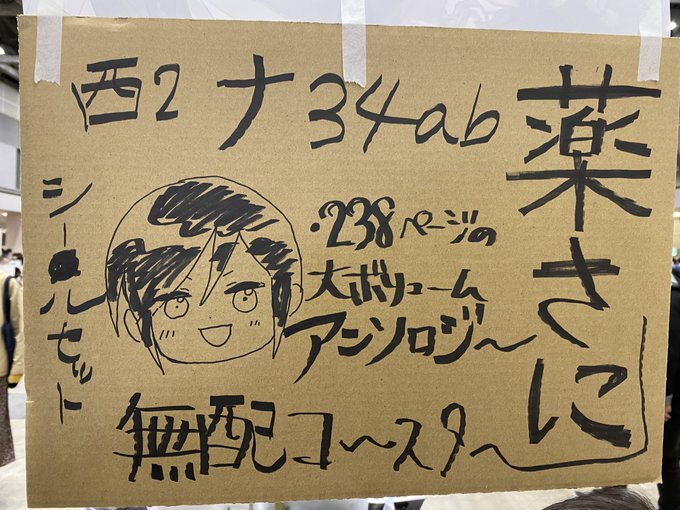 西2 ナ34ab
薬さに
・238ページの
大ボリューム
アンソロジ〜
シールセット
無配コ〜スタ〜